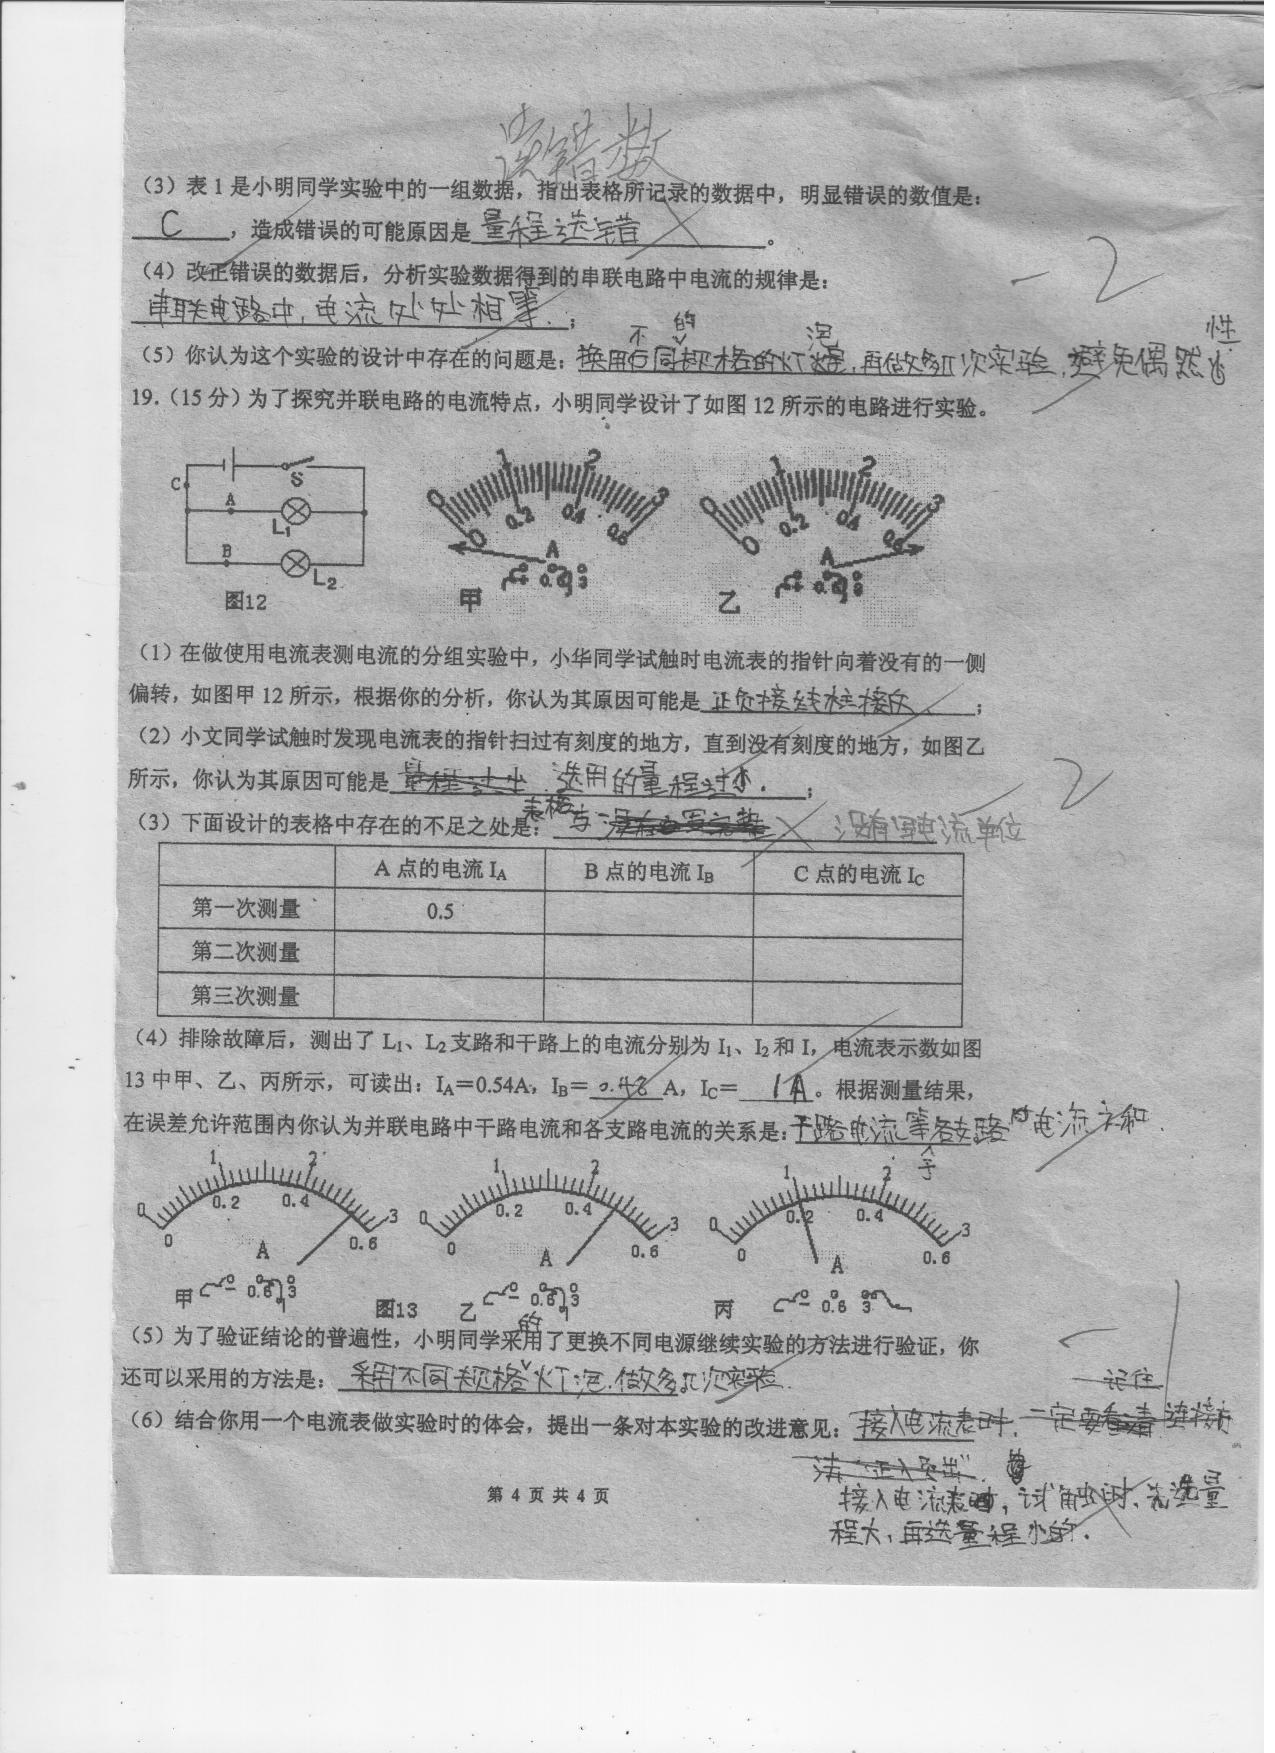 读错数
（3）表1是小明同学实验中的一组数据，指出表格所记录的数据中，明显错误的数值是：
C ，造成错误的可能原因是 量程选错 。
（4）改正错误的数据后，分析实验数据得到的串联电路中电流的规律是：
串联电路中，电流处处相等．；
（5）你认为这个实验的设计中存在的问题是：换用不同规格的灯泡，再做多几次实验，避免偶然性
-2
19.（15分）为了探究并联电路的电流特点，小明同学设计了如图12所示的电路进行实验。
C S A L1 B L2
图12
0 1 2 3 0 0.2 0.4 0.6 A 甲
0 1 2 3 0 0.2 0.4 0.6 A 乙
（1）在做使用电流表测电流的分组实验中，小华同学试触时电流表的指针向着没有的一侧
偏转，如图甲12所示，根据你的分析，你认为其原因可能是 正负接线柱接反． ；
（2）小文同学试触时发现电流表的指针扫过有刻度的地方，直到没有刻度的地方，如图乙
所示，你认为其原因可能是 选用的量程过小． ；
2
（3）下面设计的表格中存在的不足之处是： 表格 没有写电流单位
A点的电流IA B点的电流IB C点的电流IC
第一次测量 0.5
第二次测量
第三次测量
（4）排除故障后，测出了L1、L2支路和干路上的电流分别为I1、I2和I，电流表示数如图
13中甲、乙、丙所示，可读出：IA＝0.54A，IB＝0.48A，IC＝1A。根据测量结果，
在误差允许范围内你认为并联电路中干路电流和各支路电流的关系是：干路电流等于各支路的电流之和．
0 1 2 3 0 0.2 0.4 0.6 A 甲 － 0.6 3
图13
0 1 2 3 0 0.2 0.4 0.6 A 乙 － 0.6 3
0 1 2 3 0 0.2 0.4 0.6 A 丙 － 0.6 3
（5）为了验证结论的普遍性，小明同学采用了更换不同电源继续实验的方法进行验证，你
还可以采用的方法是： 采用不同规格的灯泡．做多几次实验．
记住
（6）结合你用一个电流表做实验时的体会，提出一条对本实验的改进意见：接入电流表时，一定要看清连接方
法“正入负出”．
接入电流表时，试触时，先选量
程大，再选量程小的．
第 4 页 共 4 页